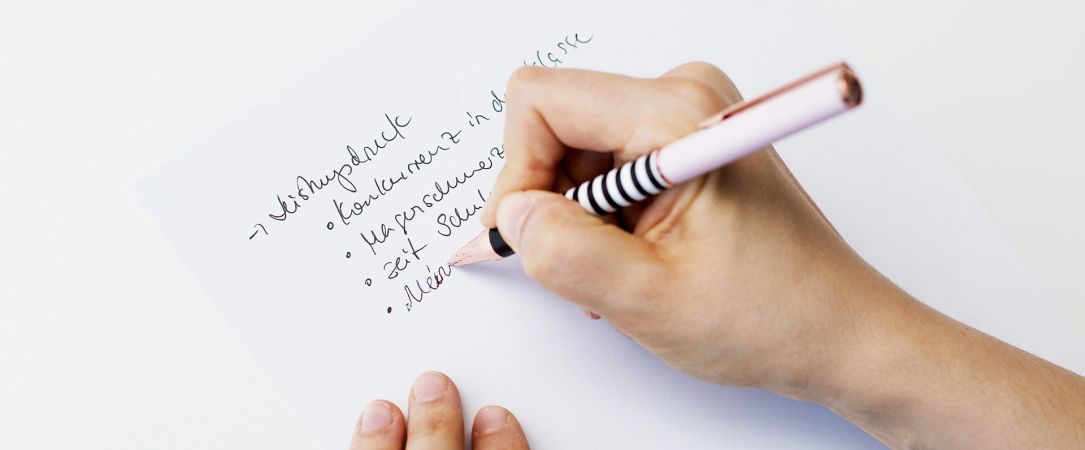 → Leistungsdruck
• Konkurrenz in d klasse
• Magenschmerze
• Zeit Schul
• Mein